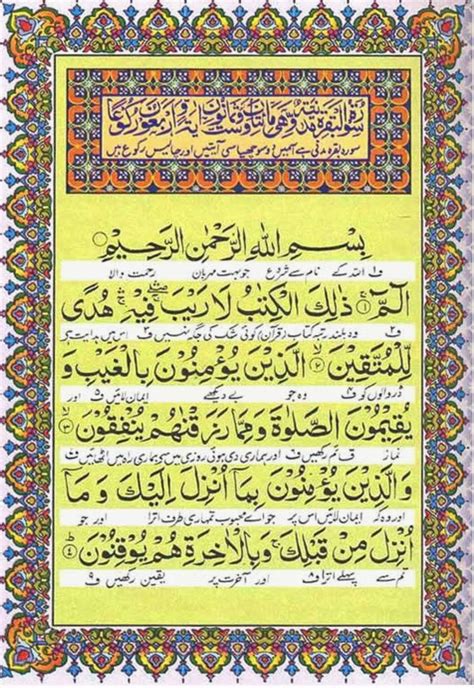 سورة البقرة مدنية وهي مائتان وست وثمانون اية واربعون ركوعا
سورہ بقرہ مدنی ہے اسمیں دو سو چھیاسی آیتیں اور چالیس رکوع ہیں
بِسْمِ اللهِ الرَّحْمٰنِ الرَّحِيْمِ
ف۱ اللہ کے نام سے شروع جو بہت مہربان رحمت والا
الٓمّٓ ۚ ذٰلِكَ الْكِتٰبُ لَا رَيْبَ ۛ فِيْهِ ۛ هُدًى
ف۲ وہ بلند رتبہ کتاب (قرآن) کوئی شک کی جگہ نہیں ف۳ اس میں ہدایت ہے
لِّلْمُتَّقِيْنَ ۙ۲ الَّذِيْنَ يُؤْمِنُوْنَ بِالْغَيْبِ وَ
ڈر والوں کو ف۴ وہ جو بے دیکھے ایمان لائیں ف۵ اور
يُقِيْمُوْنَ الصَّلٰوةَ وَمِمَّا رَزَقْنٰهُمْ يُنْفِقُوْنَ ۙ۳
نماز قائم رکھیں ف۶ اور ہماری دی ہوئی روزی میں سے ہماری راہ میں اٹھائیں ف۷
وَالَّذِيْنَ يُؤْمِنُوْنَ بِمَآ اُنْزِلَ اِلَيْكَ وَ مَآ
اور وہ کہ ایمان لائیں اس پر جو اے محبوب تمہاری طرف اترا اور جو
اُنْزِلَ مِنْ قَبْلِكَ ۚ وَبِالْاٰخِرَةِ هُمْ يُوْقِنُوْنَ ؕ۴
تم سے پہلے اترا ف۸ اور آخرت پر یقین رکھیں ف۹